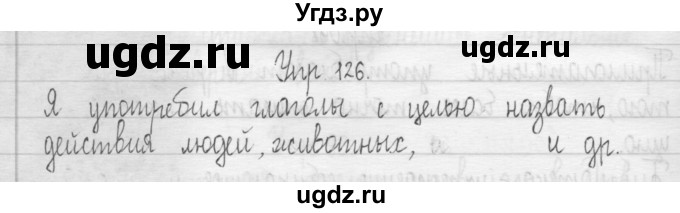 Угдз.ру
ugdz.ru ugdz.ru
Упр 126.
Я употребил глаголы с целью назвать
действия людей, животных, и др.
ugdz.ru